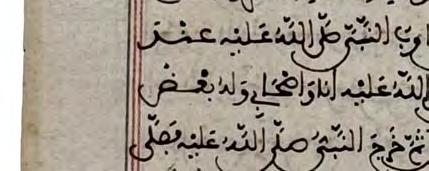 النبي صلى الله عليه عشر
الله عليه انا واصحابي وله بعض
ثم خرج النبي صلى الله عليه فصلى